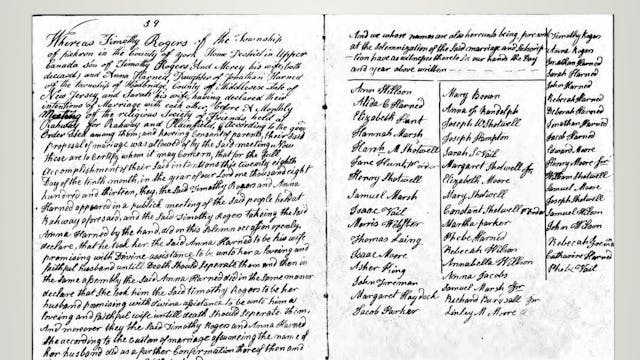 39
Whereas Timothy Rogers of the Township
of pickron in the County of york Home District in Upper
Canada son of Timothy Rogers And Mercy his wife, both
deceased; and Anna Harned, Daughter of Jonathan Harned
of the township of Woodbridge, County of Middlesex State of
New Jersey and Sarah his wife, having declared their
intentions of Marriage with each other, before a Monthly
Meeting of the religious Society of Friends, held at
Rahway for Rahway and Plainfield, according to the good
Order used among them; and having consent of parents, their said
proposal of marriage was allowed of by the said meeting. Now
these are to Certify whom it may Concern, that for the full
Accomplishment of their Said intentions this twenty eighth
Day of the tenth month in the year of our Lord one thousand eight
hundred and thirteen, they, the Said Timothy Rogers and Anna
Harned appeared in a publick meeting of the Said people held at
Rahway aforesaid, and the Said Timothy Rogers taking the Said
Anna Harned by the hand, did on this Solemn occasion openly
declare, that he took her, the Said Anna Harned to be his wife
promising with Divine assistance to be unto her a loveing and
faithful husband untill Death should seperate them and then in
the same assembly the Said Anna Harned did in the Same manner
declare that She took him the Said Timothy Rogers to be her
husband promising with Divine assistance to be unto him a
loveing and faithful wife untill death should Seperate them.
And moreover they the Said Timothy Rogers and Anna Harned
She according to the custom of marriage assuming the name of
her husband did as a further Confirmation thereof then and
And we whose names are also hereunto being present
at the Solemnization of the Said marriage and Subscrip
tion have as witnesses thereto Set our hands the Day
and year above written
Ann Hillson
Alida C Harned
Elizabeth
Hannah Marsh
Shotwell
Jane
Henry Shotwell
Samuel Marsh
Isaac Vail
Morris Webster
Thomas Laing
Isaac Moore
Asher King
John Foreman
Margaret Haydock
Jacob Parker
Mary Brown
Anna Randolph
Joseph D Shotwell
Joseph Shotwell
Sarah S Vail
Margaret Shotwell Jr
Elizabeth Moore
Mary Shotwell
Constant Shotwell
Martha parker
Phebe Harned
Rebecah Willson
Annabella Willson
Anna Jacobs
Samuel Marsh Jr
Richard Jr
Linley M. Moore
Timothy Rogers
Anna Rogers
Jonathan Harned
Sarah Harned
John Harned
Rebecah Harned
Deborah Harned
Jonathan Harned
Jacob Harned
Edward Moore
Henry Moore Jr
William Shotwell
Samuel Moore
Joseph Shotwell
Samuel Willson
John Willson
Rebecah
Catharine Harned
Phebe Vail